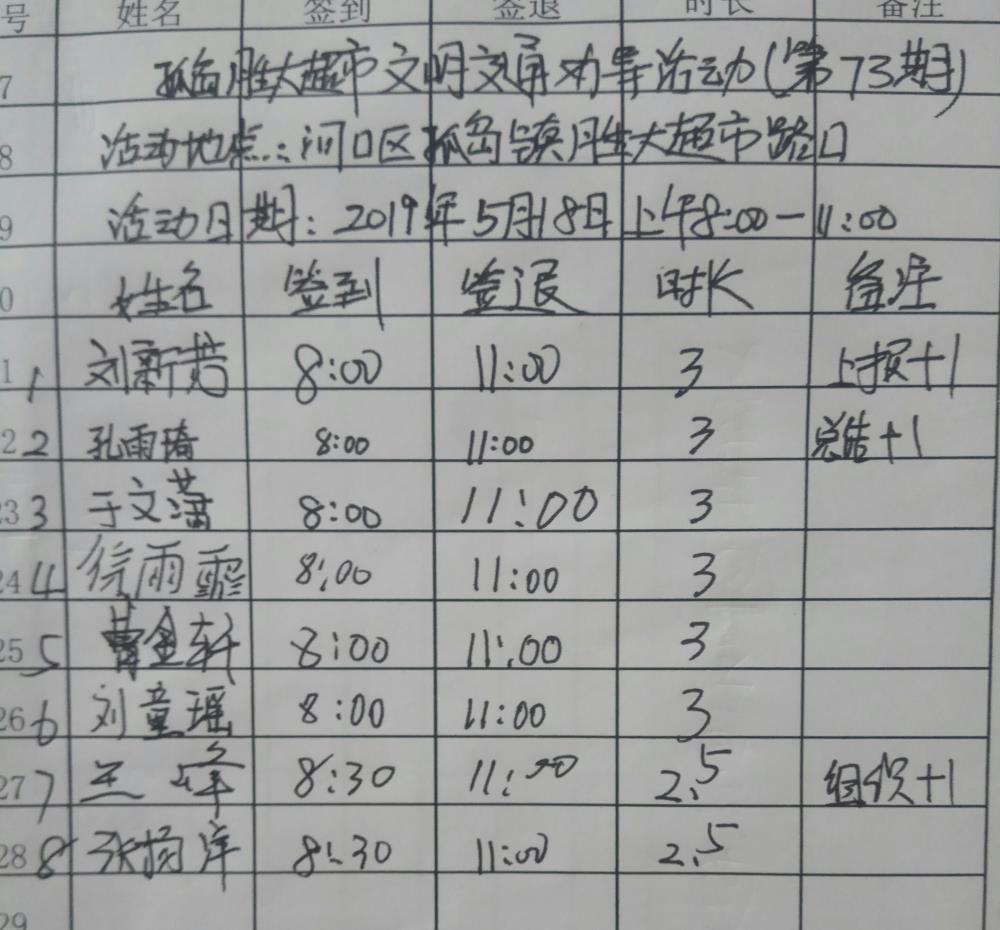 号 姓名 签到 签退 时长 备注
7 孤岛胜大超市文明交通劝导活动(第73期)
8 活动地点:河口区孤岛镇胜大超市路口
9 活动日期:2019年5月18日上午8:00-11:00
0 姓名 签到 签退 时长 备注
1 1 刘新茹 8:00 11:00 3 上报+1
22 2 孔雨琦 8:00 11:00 3 总结+1
23 3 于文潇 8:00 11:00 3
24 4 徐雨霏 8:00 11:00 3
25 5 曹金轩 8:00 11:00 3
26 6 刘童瑶 8:00 11:00 3
27 7 王峰 8:30 11:00 2.5 组织+1
28 8 张杨洋 8:30 11:00 2.5
29